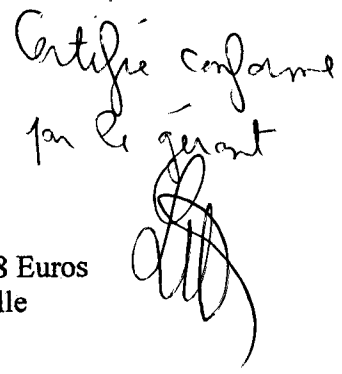 Certifié conforme
par le gérant
8 Euros
lle